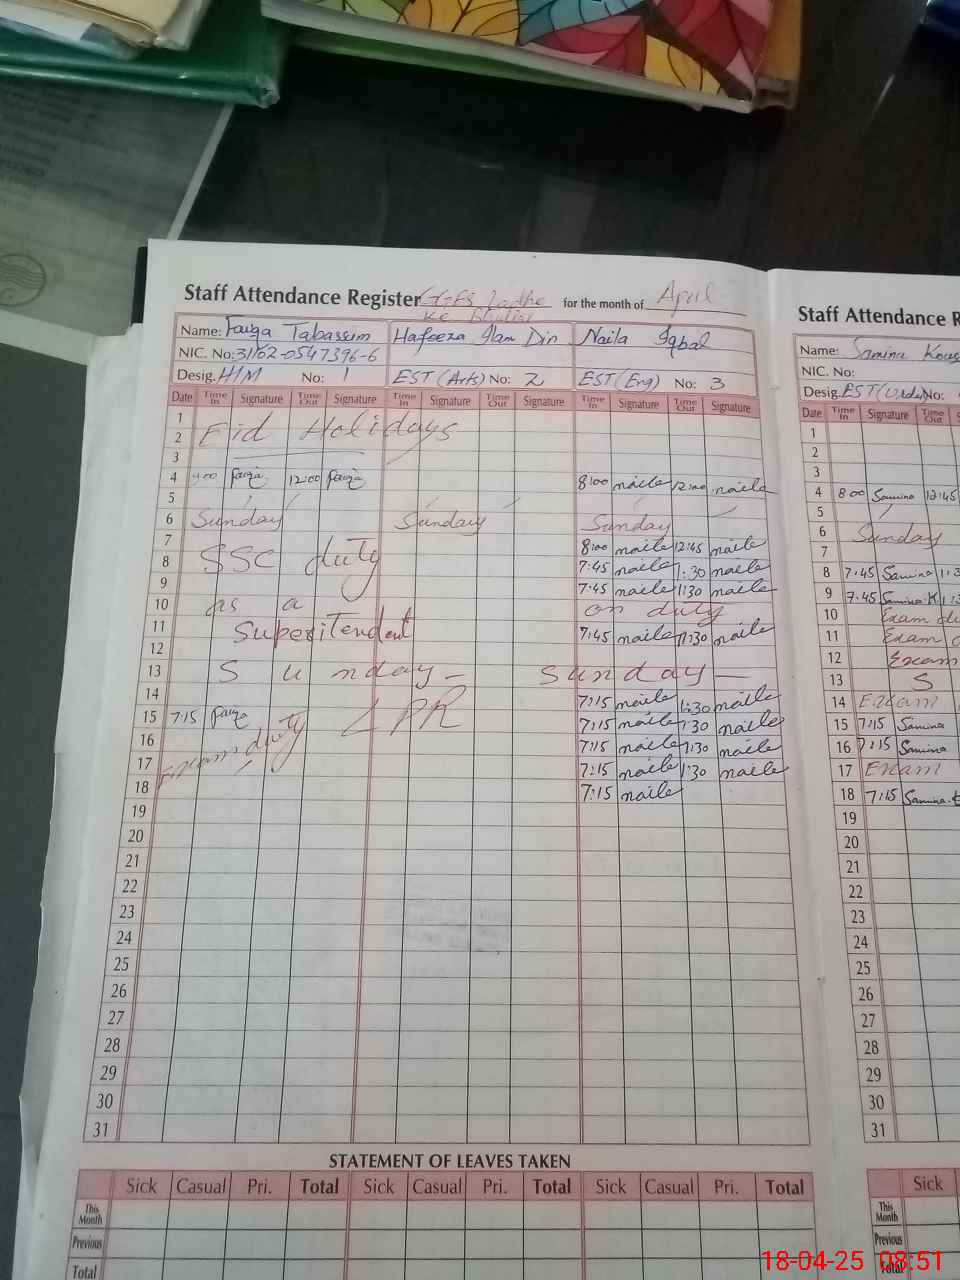 Staff Attendance Register GGES Ladhe for the month of April
Ke
Name: Fauzia Tabassum Hafeeza Ilam Din Naila Iqbal
NIC. No: 31162-0547396-6
Desig. H/M No: 1 EST (Arts) No: 2 EST (Eng) No: 3
Date Time In Signature Time Out Signature Time In Signature Time Out Signature Time In Signature Time Out Signature
1
2 Eid Holidays
3
4 9:00 Fauzia 12:00 Fauzia 8:00 naila 12:00 naila
5
6 Sunday Sunday Sunday
7 8:00 naila 12:45 naila
8 SSC duty 7:45 naila 1:30 naila
9 7:45 naila 1:30 naila
10 as a on duty
11 Superitendent 7:45 naila 11:30 naila
12
13 Sunday - Sunday -
14 7:15 naila 1:30 naila
15 7:15 Fauzia LPR 7:15 naila 1:30 naila
16 Exam duty 7:15 naila 1:30 naila
17 7:15 naila 1:30 naila
18 7:15 naila
19
20
21
22
23
24
25
26
27
28
29
30
31
STATEMENT OF LEAVES TAKEN
Sick Casual Pri. Total Sick Casual Pri. Total Sick Casual Pri. Total
This Month
Previous
Total
Staff Attendance R
Name: Samina
NIC. No:
Desig. EST (Urdu) No:
Date Time In Signature Time Out S
1
2
3
4 8:00 Samina 12:45
5
6 Sunday
7
8 7:45 Samina 1:3
9 7:45 Samina.K 1:3
10 Exam du
11 Exam
12 Exam
13 S
14 Exam
15 7:15 Samina
16 7:15 Samina
17 Exam
18 7:15 Samina.K
19
20
21
22
23
24
25
26
27
28
29
30
31
Sick
This Month
Previous
Total
18-04-25 08:51